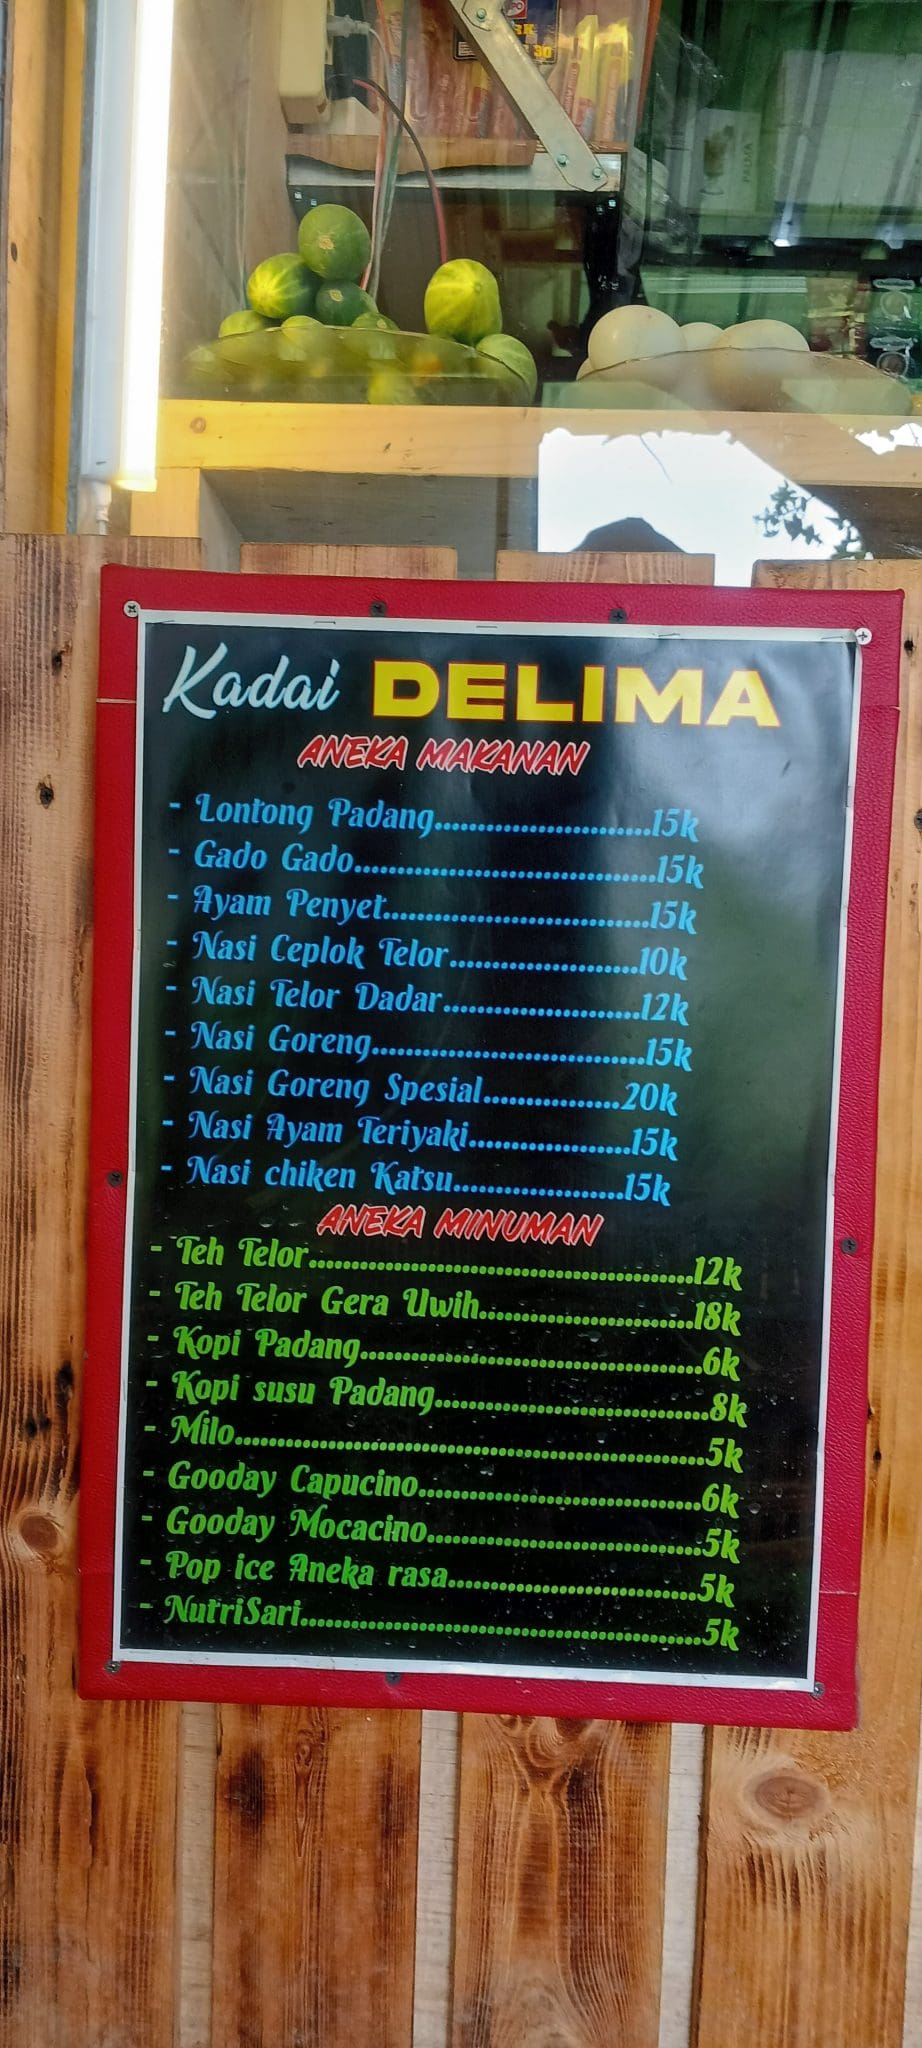 Kadai DELIMA
ANEKA MAKANAN
- Lontong Padang..........................15k
- Gado Gado....................................15k
- Ayam Penyet................................15k
- Nasi Ceplok Telor......................10k
- Nasi Telor Dadar.......................12k
- Nasi Goreng.................................15k
- Nasi Goreng Spesial................20k
- Nasi Ayam Teriyaki...................15k
- Nasi chiken Katsu....................15k
ANEKA MINUMAN
- Teh Telor..............................................12k
- Teh Telor Gera Uwih..........................18k
- Kopi Padang.........................................6k
- Kopi susu Padang.................................8k
- Milo........................................................5k
- Gooday Capucino..................................6k
- Gooday Mocacino.................................5k
- Pop ice Aneka rasa..............................5k
- NutriSari................................................5k